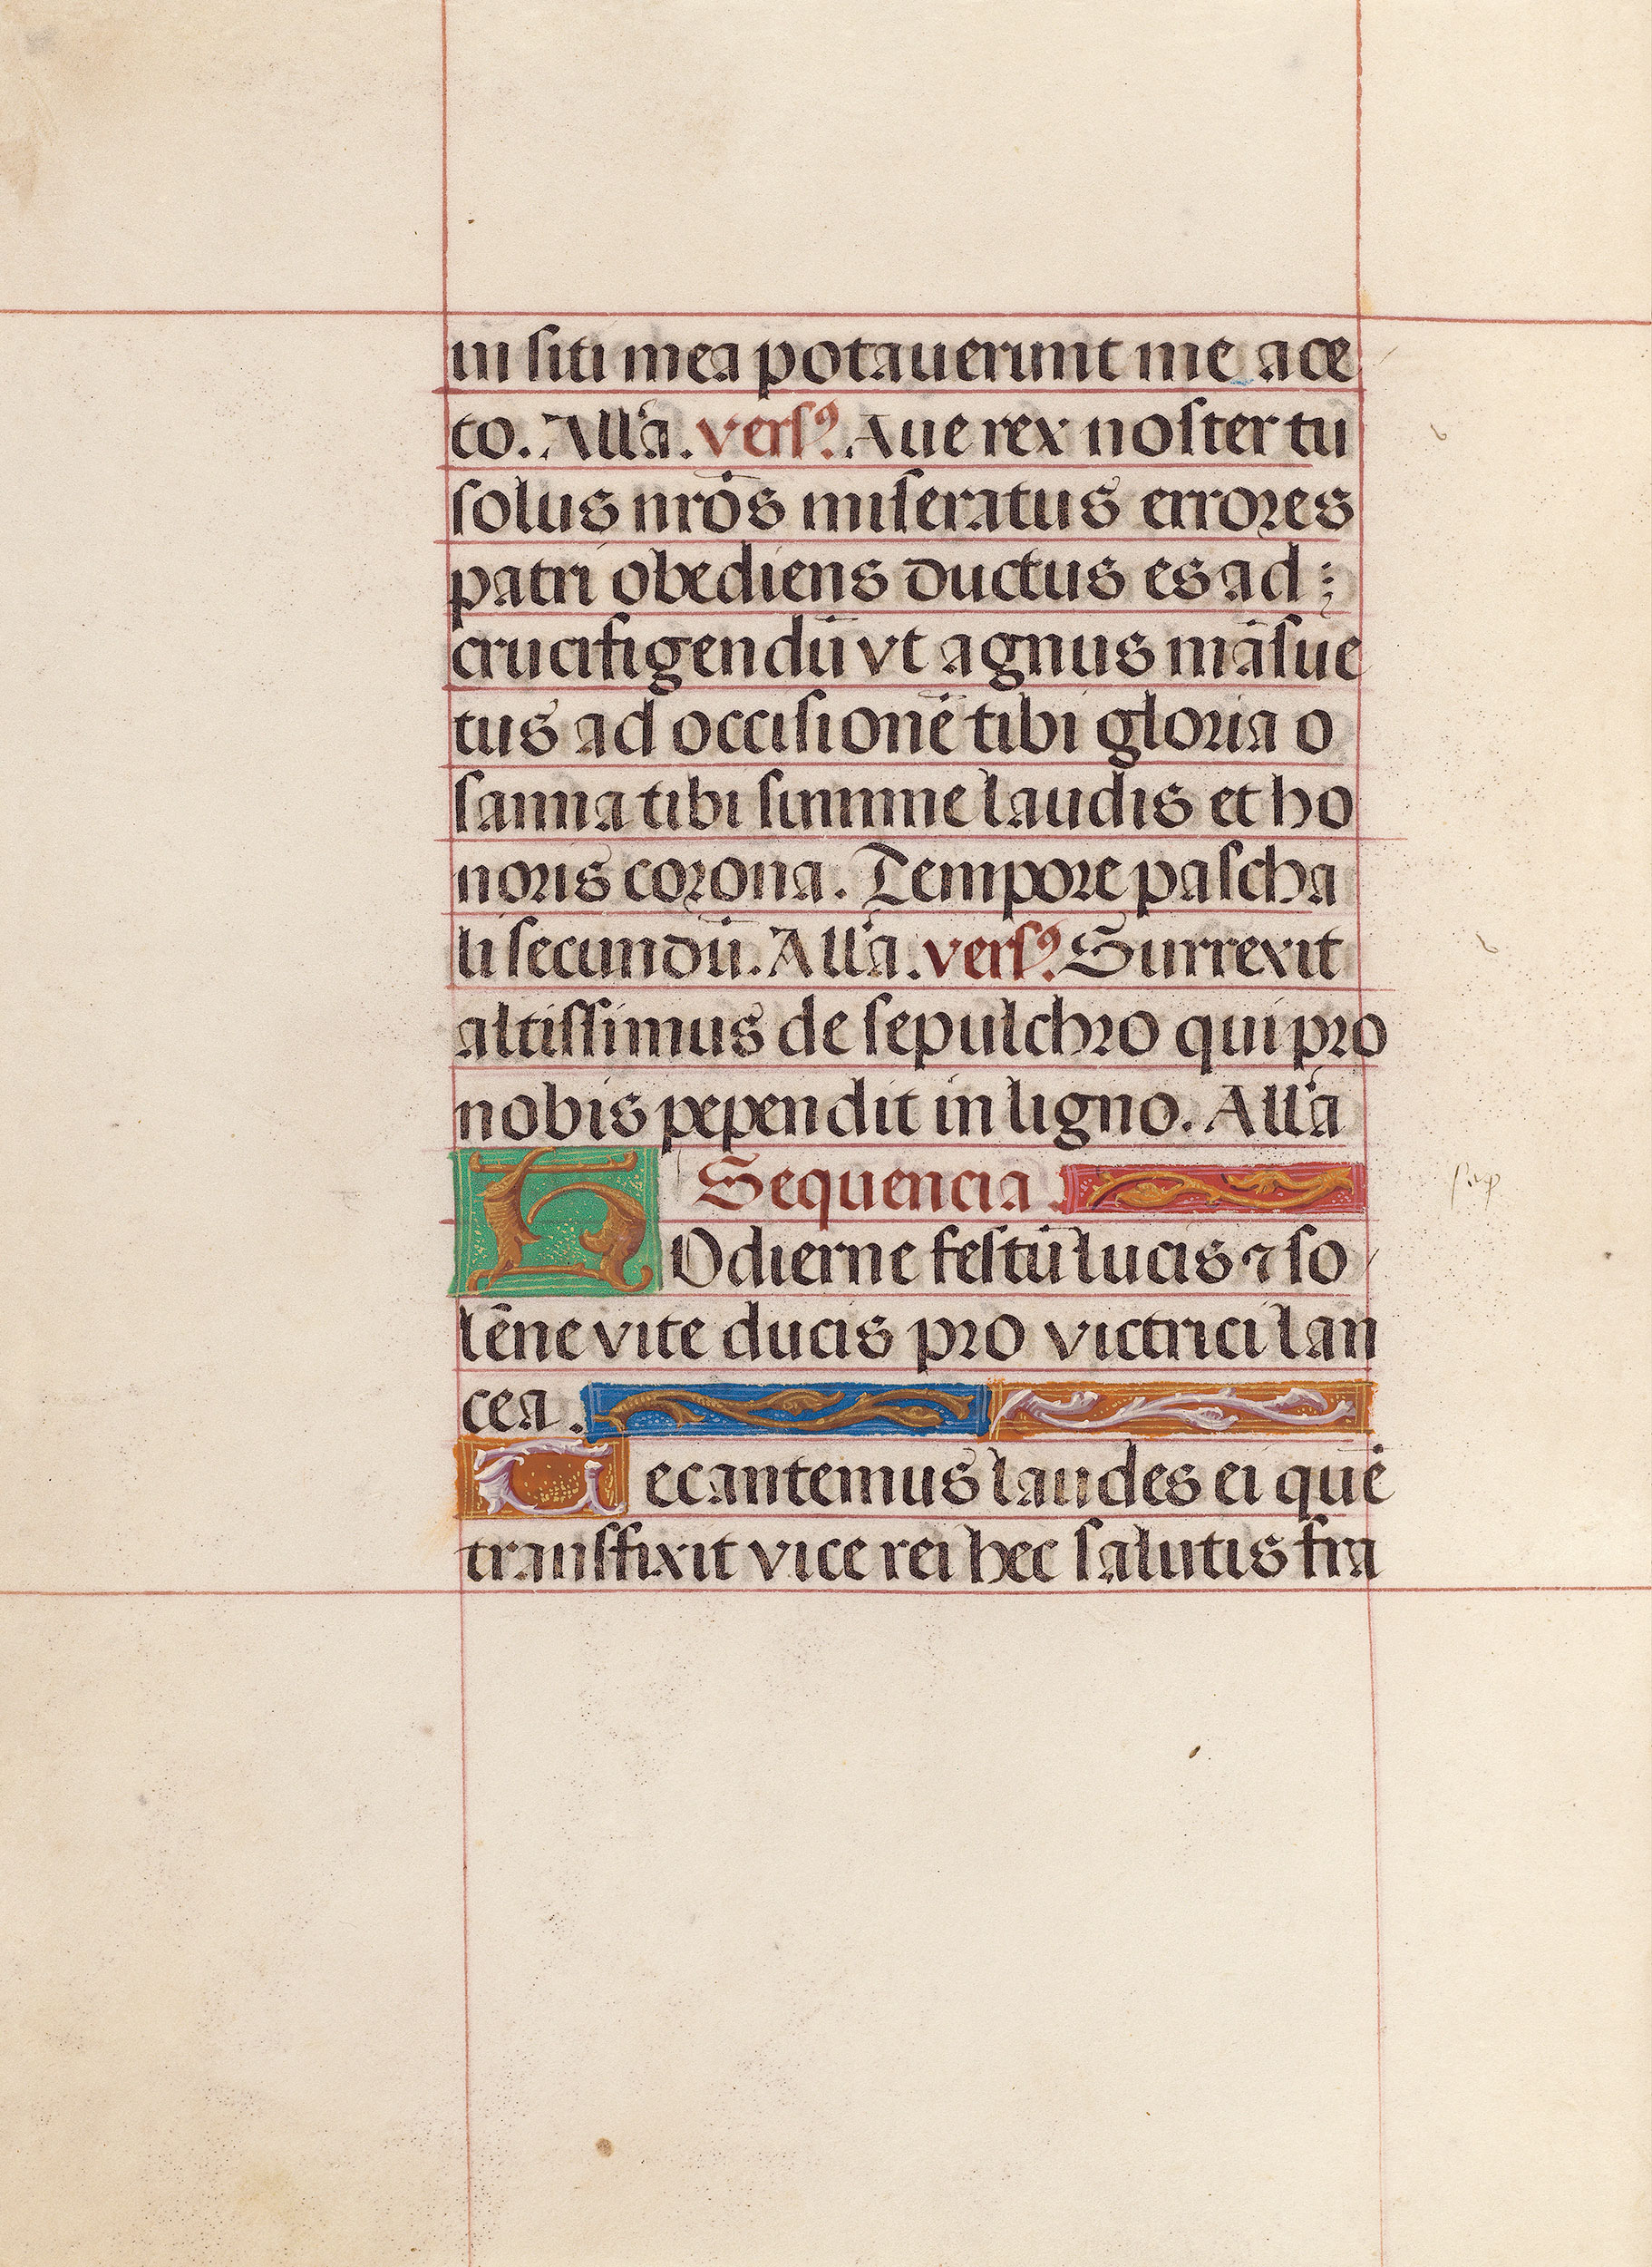 in siti mea potauerunt me ace
to. All'a. versꝰ. Aue rex noster tu
solus nr̄os miseratus errores
patri obediens ductus es ad :
crucifigendū vt agnus māsue
tus ad occisionē tibi gloria o
sanna tibi summe laudis et ho
noris corona. Tempore pascha
li secundū. All'a. versꝰ. Surrexit
altissimus de sepulchro qui pro
nobis pependit in ligno. All'a
Sequencia.
HOdierne festū lucis ⁊ so
lēne vite ducis pro victrici lan
cea.
Decantemus laudes ei quē
transfixit vice rei hec salutis fra